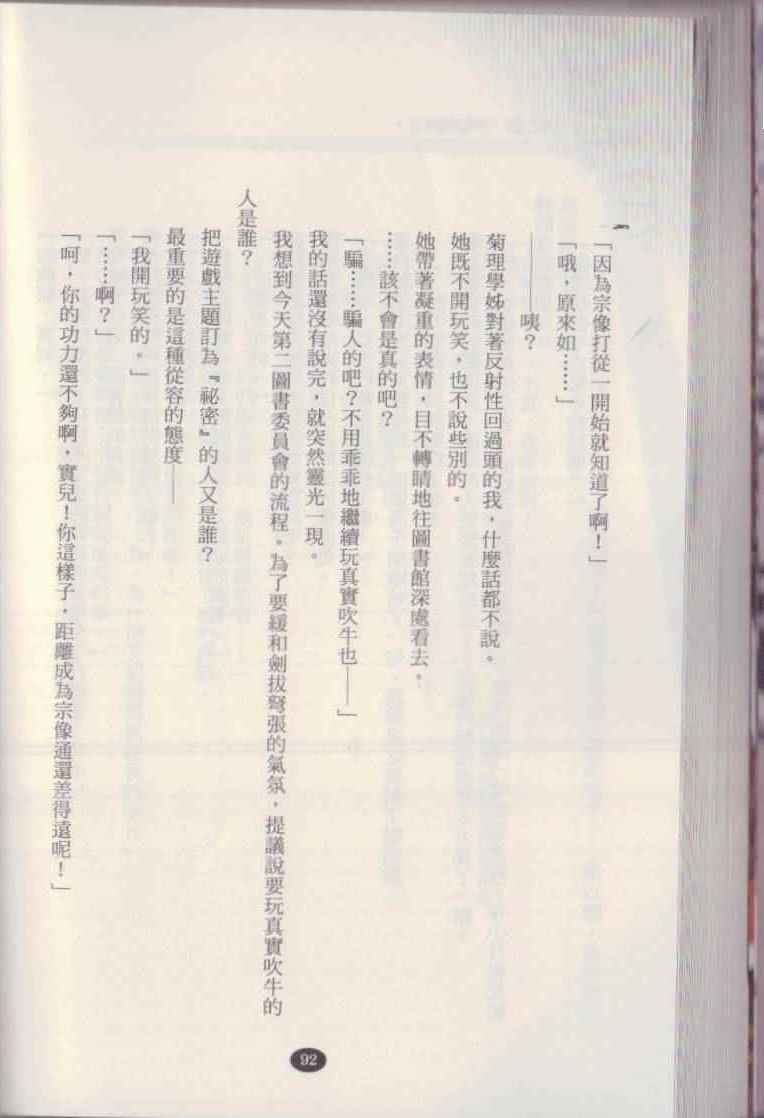 「因為宗像打從一開始就知道了啊！」
「哦，原來如……」
——咦？
菊理學姊對著反射性回過頭的我，什麼話都不說。
她既不開玩笑，也不說些別的。
她帶著凝重的表情，目不轉睛地往圖書館深處看去。
……該不會是真的吧？
「騙……騙人的吧？不用乖乖地繼續玩真實吹牛也——」
我的話還沒有說完，就突然靈光一現。
我想到今天第二圖書委員會的流程。為了要緩和劍拔弩張的氣氛，提議說要玩真實吹牛的
人是誰？
把遊戲主題訂為『祕密』的人又是誰？
最重要的是這種從容的態度——
「我開玩笑的。」
「……啊？」
「呵，你的功力還不夠啊，實兒！你這樣子，距離成為宗像通還差得遠呢！」
92